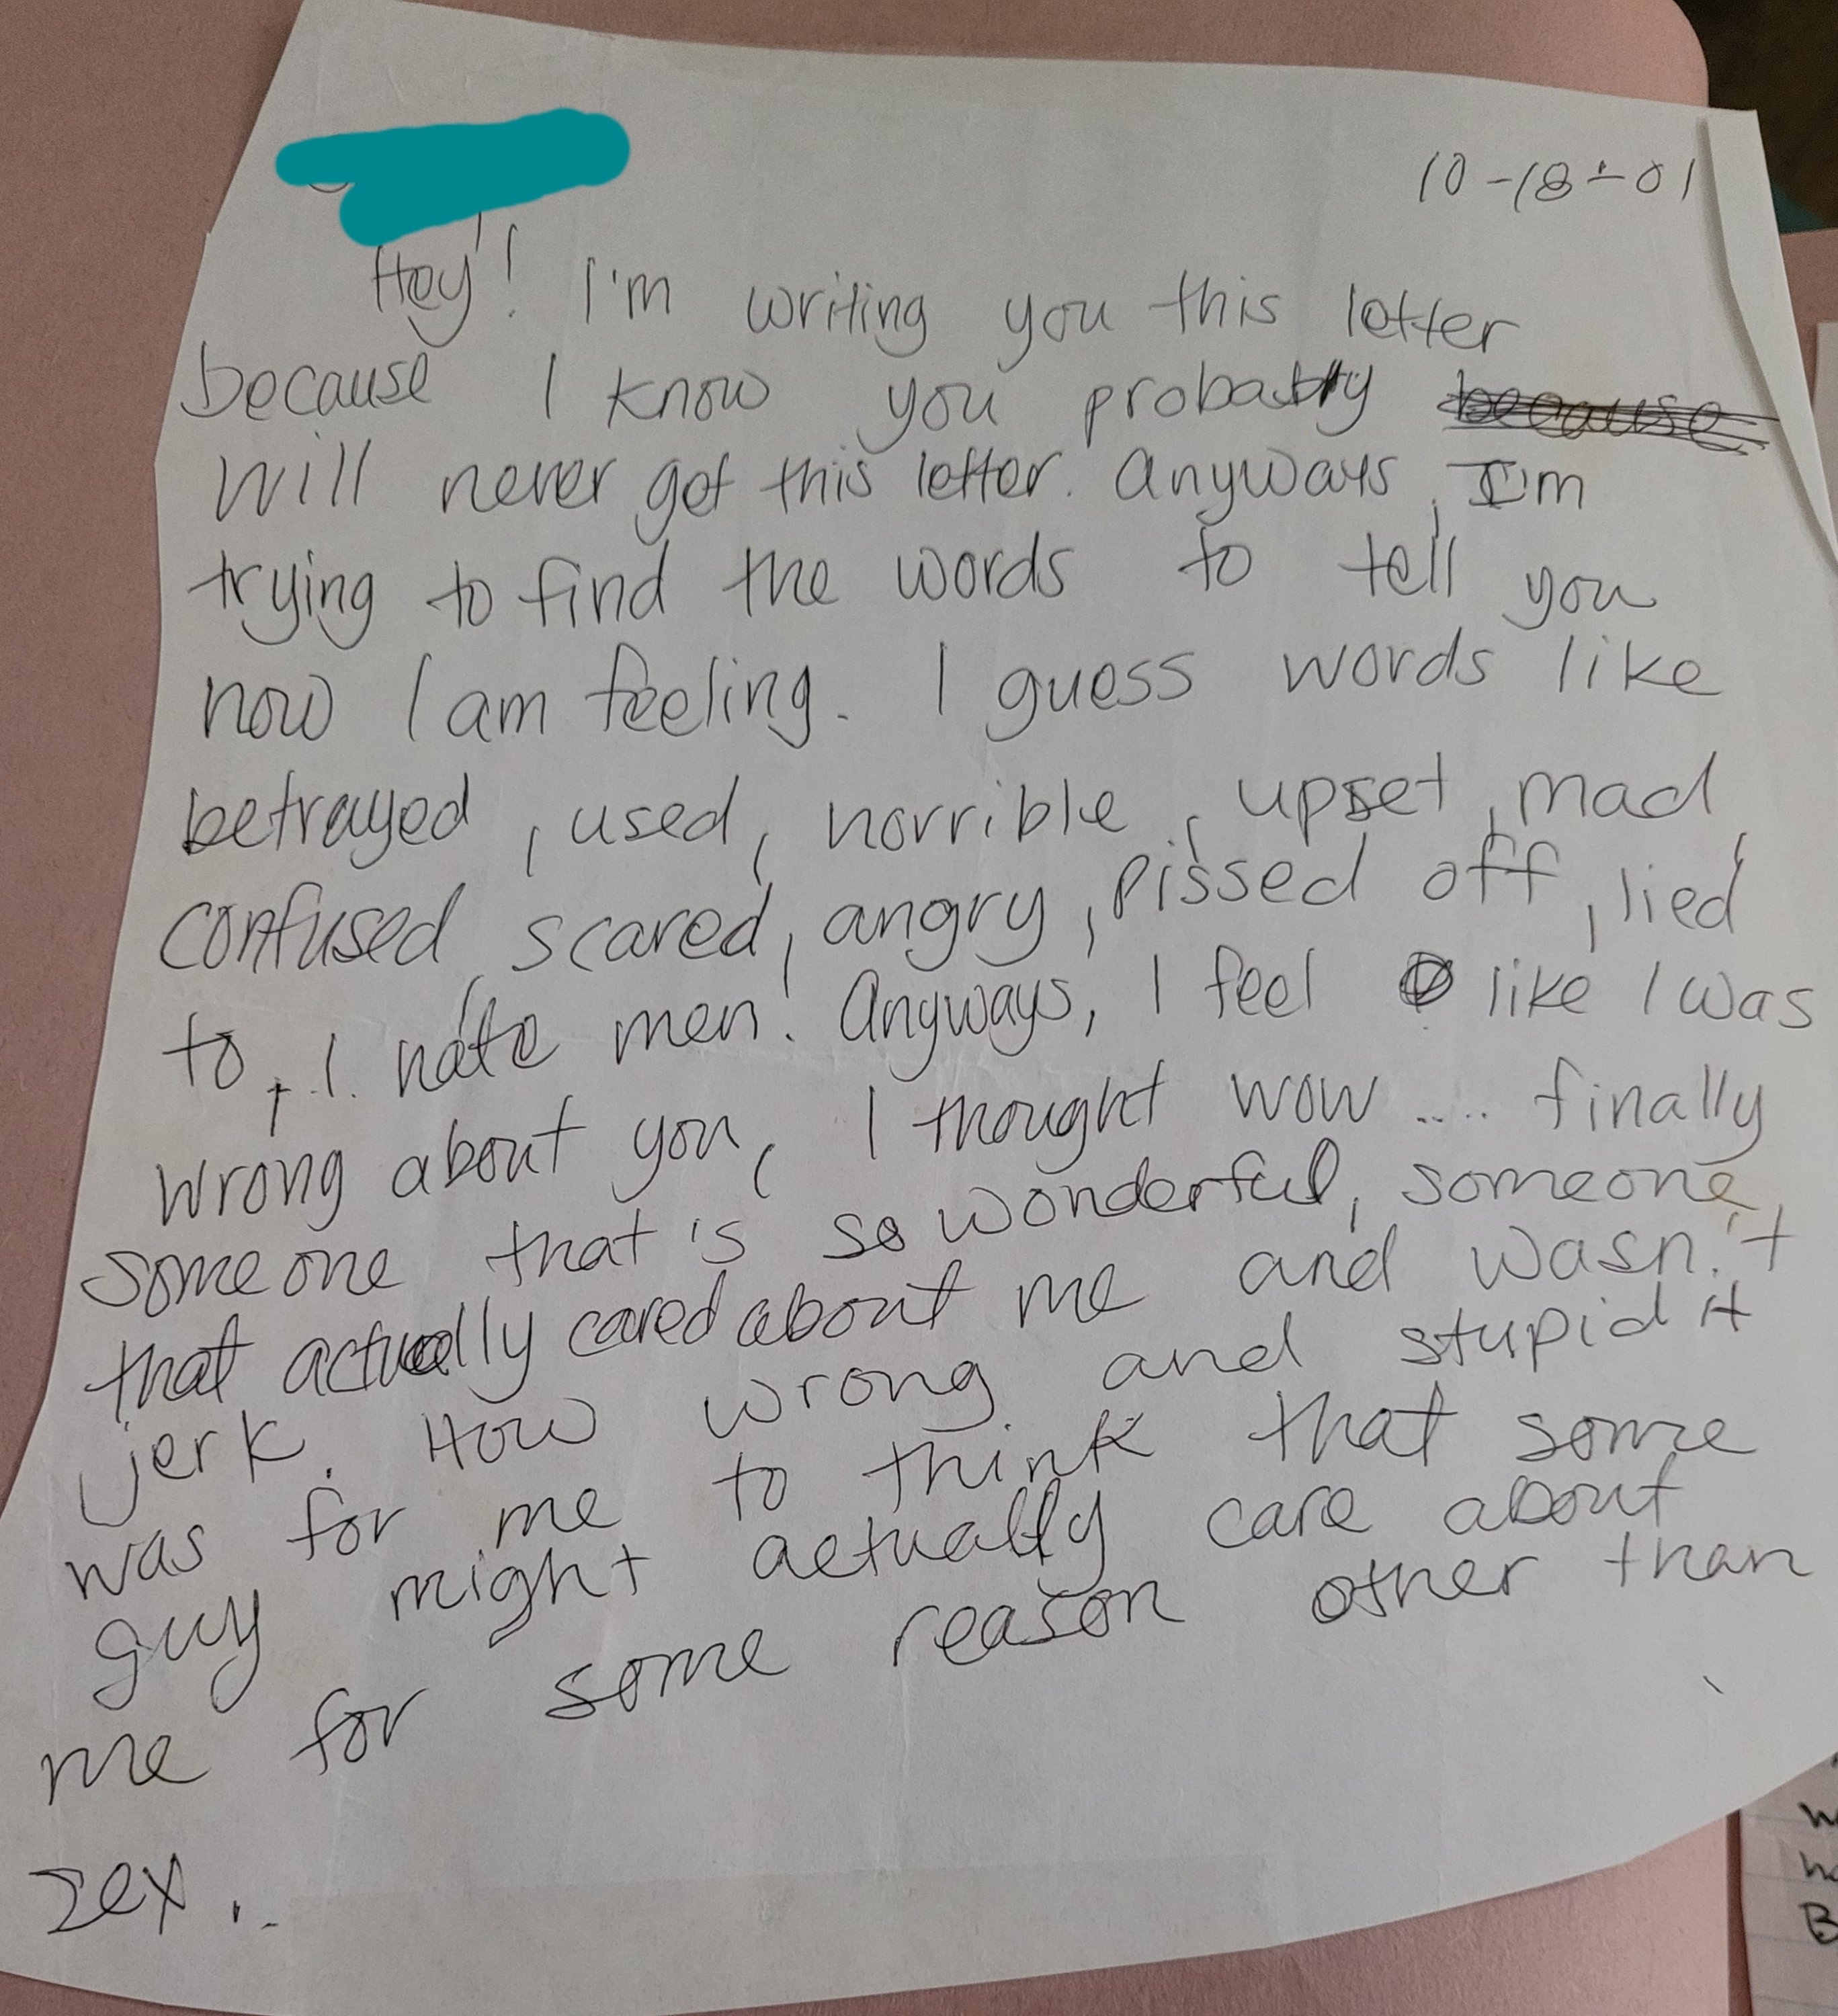 10-18-01
Hey! I'm writing you this letter
because I know you probably because
will never get this letter. Anyways, I'm
trying to find the words to tell you
how I am feeling. I guess words like
betrayed, used, horrible, upset, mad,
confused, scared, angry, pissed off, lied
to, I hate men! Anyways, I feel like I was
wrong about you, I thought wow.... finally
someone that's so wonderful, someone,
that actually cared about me and wasn't
jerk. How wrong and stupid it
was for me to think that some
guy might actually care about
me for some reason other than
sex...
w
B